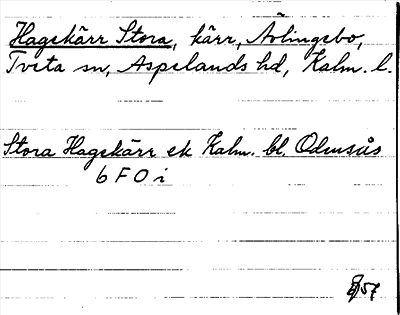 Hagskärr Stora, kärr, Årlingebo,
Tveta sn, Aspelands hd, Kalm. l.
Stora Hagskärr ek Kalm. bl. Ödmsås
6 F 0 i
57